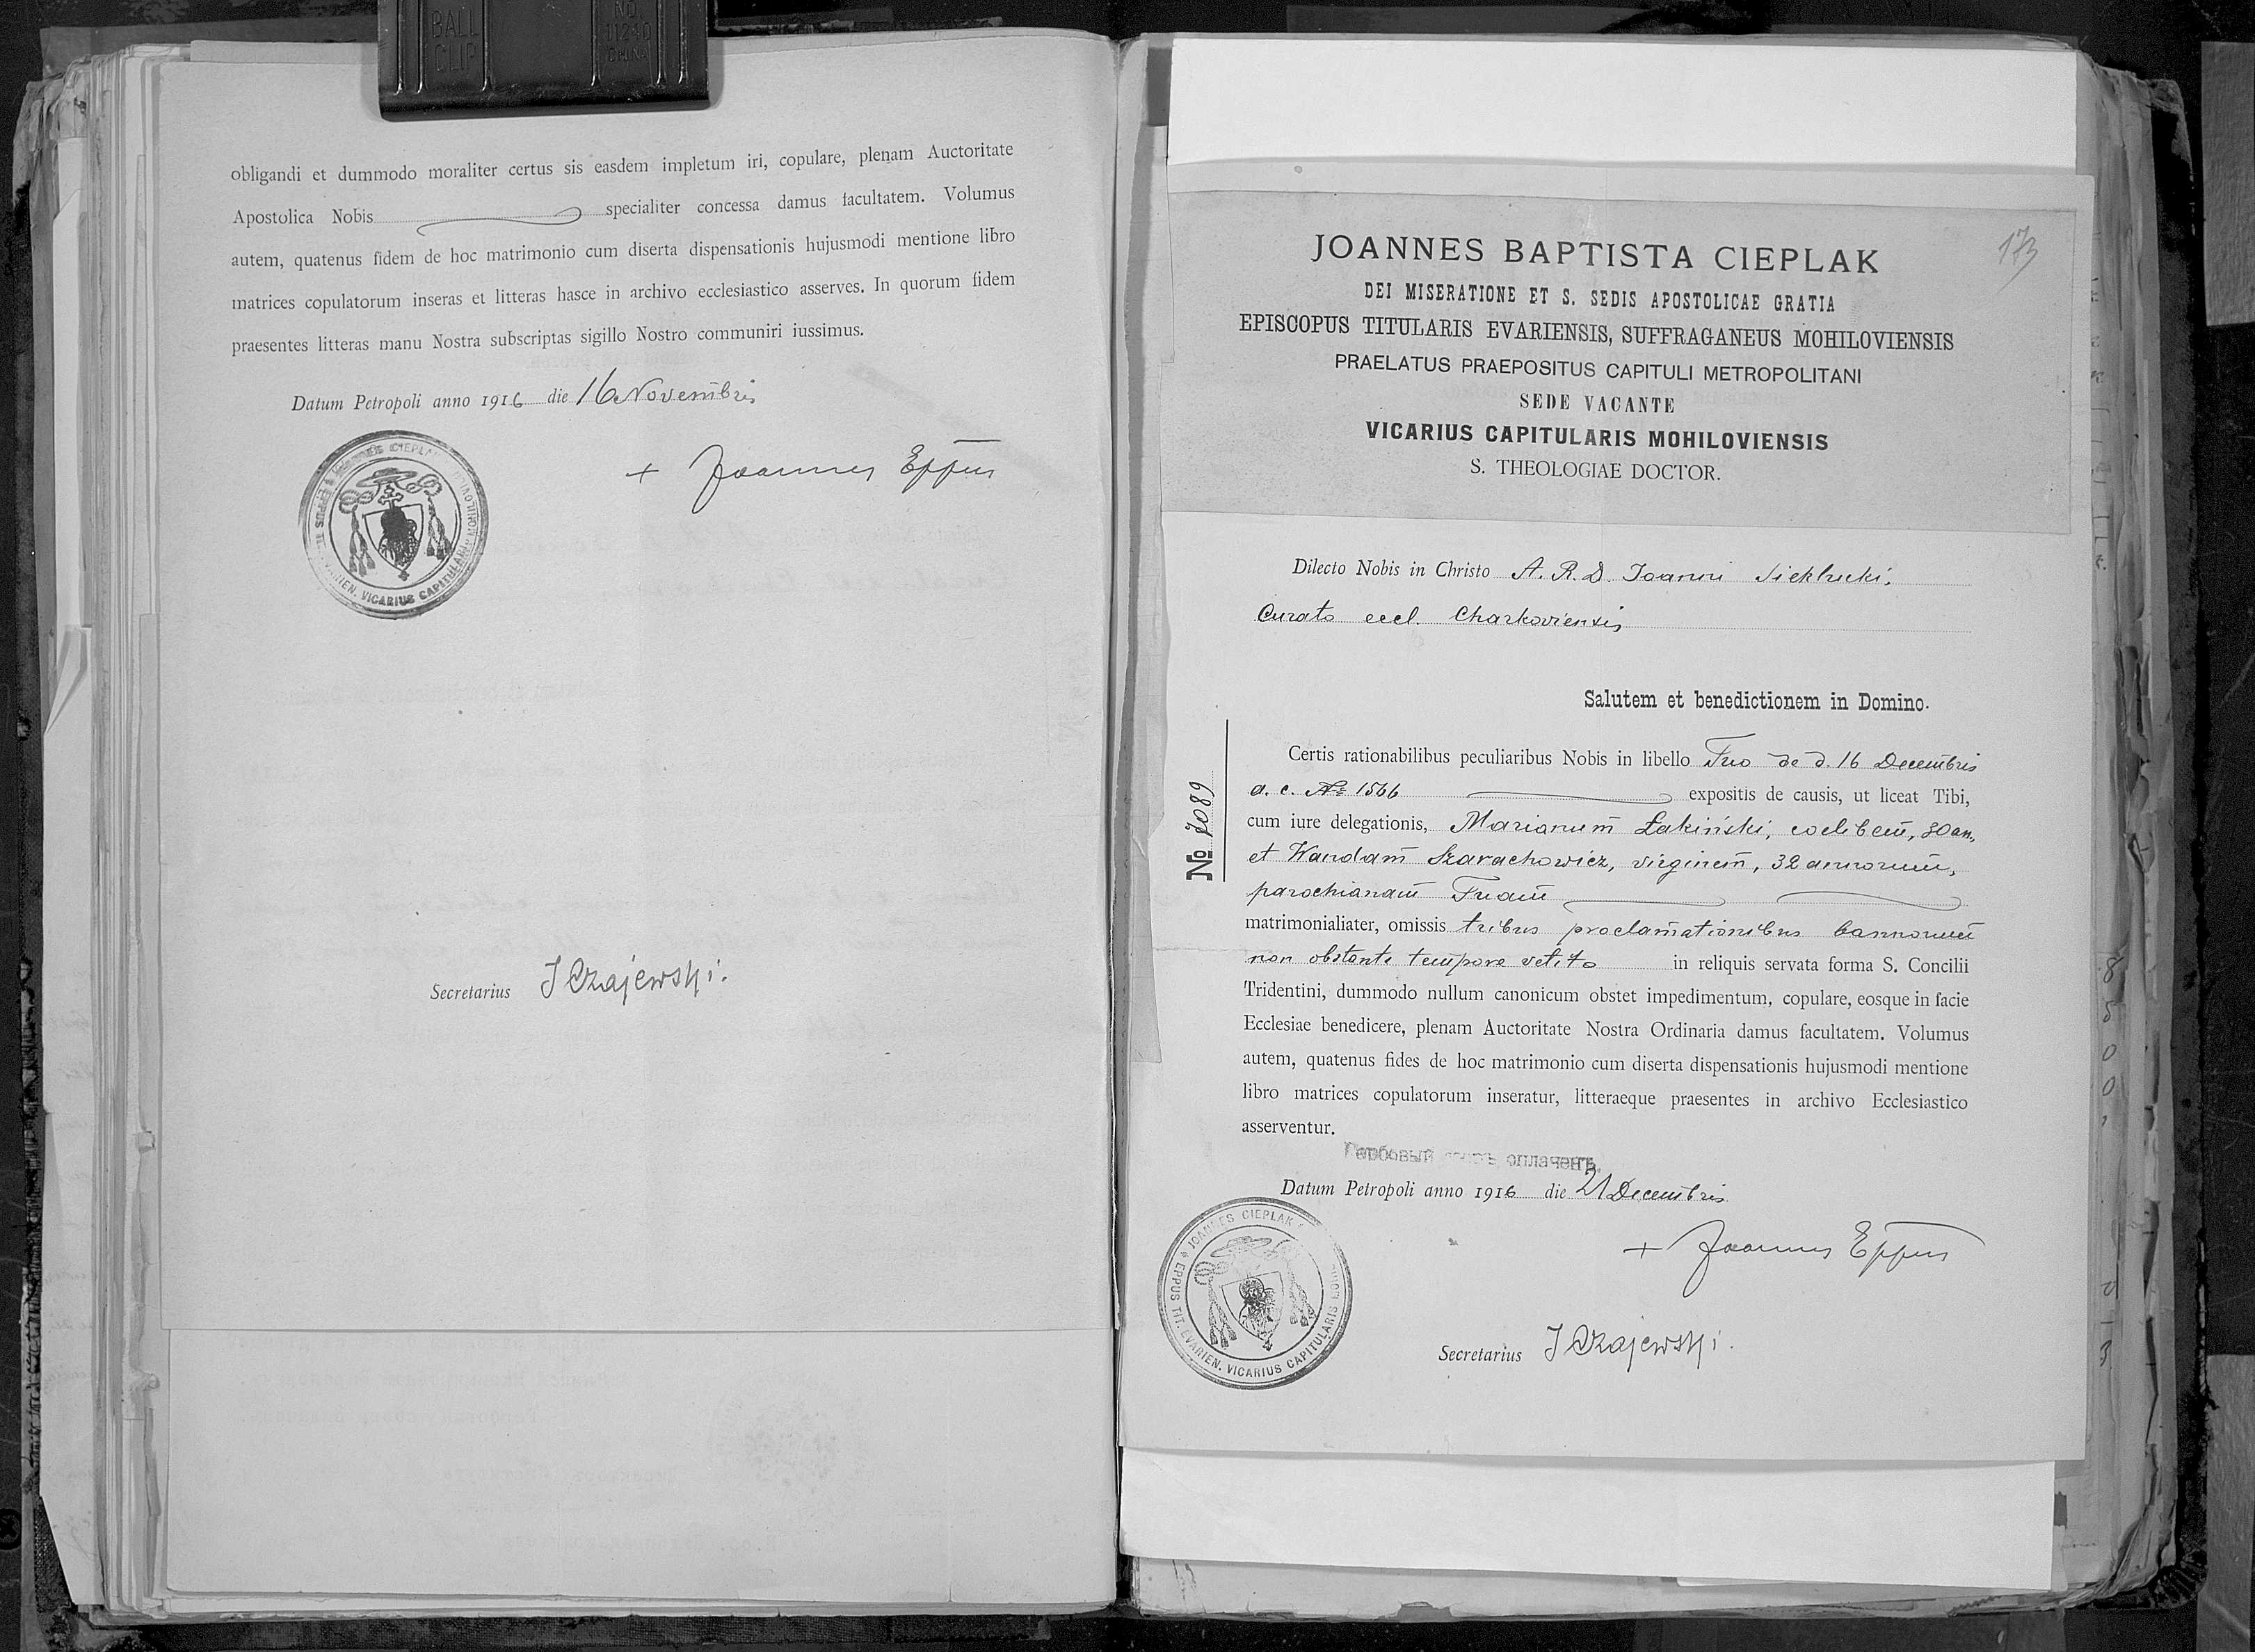 BALL
CLIP
NO.
11240
CHINA
obligandi et dummodo moraliter certus sis easdem impletum iri, copulare, plenam Auctoritate
Apostolica Nobis specialiter concessa damus facultatem. Volumus
autem, quatenus fidem de hoc matrimonio cum diserta dispensationis hujusmodi mentione libro
matrices copulatorum inseras et litteras hasce in archivo ecclesiastico asserves. In quorum fidem
praesentes litteras manu Nostra subscriptas sigillo Nostro communiri iussimus.
Datum Petropoli anno 1916 die 16 Novembris
+ Joannes Eppus
Secretarius
173
JOANNES BAPTISTA CIEPLAK
DEI MISERATIONE ET S. SEDIS APOSTOLICAE GRATIA
EPISCOPUS TITULARIS EVARIENSIS, SUFFRAGANEUS MOHILOVIENSIS
PRAELATUS PRAEPOSITUS CAPITULI METROPOLITANI
SEDE VACANTE
VICARIUS CAPITULARIS MOHILOVIENSIS
S. THEOLOGIAE DOCTOR.
Dilecto Nobis in Christo A. R. D. Joanni
Curato eccl. Charkoviensis
Salutem et benedictionem in Domino.
№ 7089
Certis rationabilibus peculiaribus Nobis in libello Tuo de d. 16 Decembris
a. c. № 1566 expositis de causis, ut liceat Tibi,
cum iure delegationis, Marianum Łakiński, coelibem, 30 an.
et Wandam Szarachowicz, virginem, 32 annorum,
parochianam Tuam
matrimonialiater, omissis tribus proclamationibus bannorum
non obstante tempore vetito in reliquis servata forma S. Concilii
Tridentini, dummodo nullum canonicum obstet impedimentum, copulare, eosque in facie
Ecclesiae benedicere, plenam Auctoritate Nostra Ordinaria damus facultatem. Volumus
autem, quatenus fides de hoc matrimonio cum diserta dispensationis hujusmodi mentione
libro matrices copulatorum inseratur, litteraeque praesentes in archivo Ecclesiastico
asserventur.
Гербовый оплаченъ.
Datum Petropoli anno 1916 die 21 Decembris
+ Joannes Eppus
JOANNES CIEPLAK
EPPUS TIT. EVARIEN. VICARIUS CAPITULARIS
Secretarius